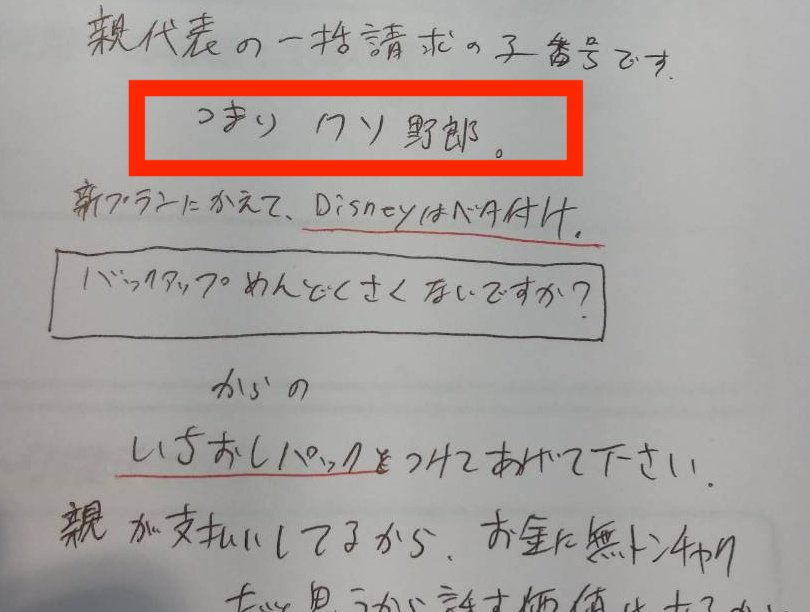 親代表の一括請求の子番号です.
つまり クソ野郎。
新プランにかえて、Disneyはベタ付け.
バックアップめんどくさくないですか?
からの
いちおしパックをつけてあげて下さい.
親が支払いしてるから、お金に無トンチャク
だと思うから話す価値はあるかと